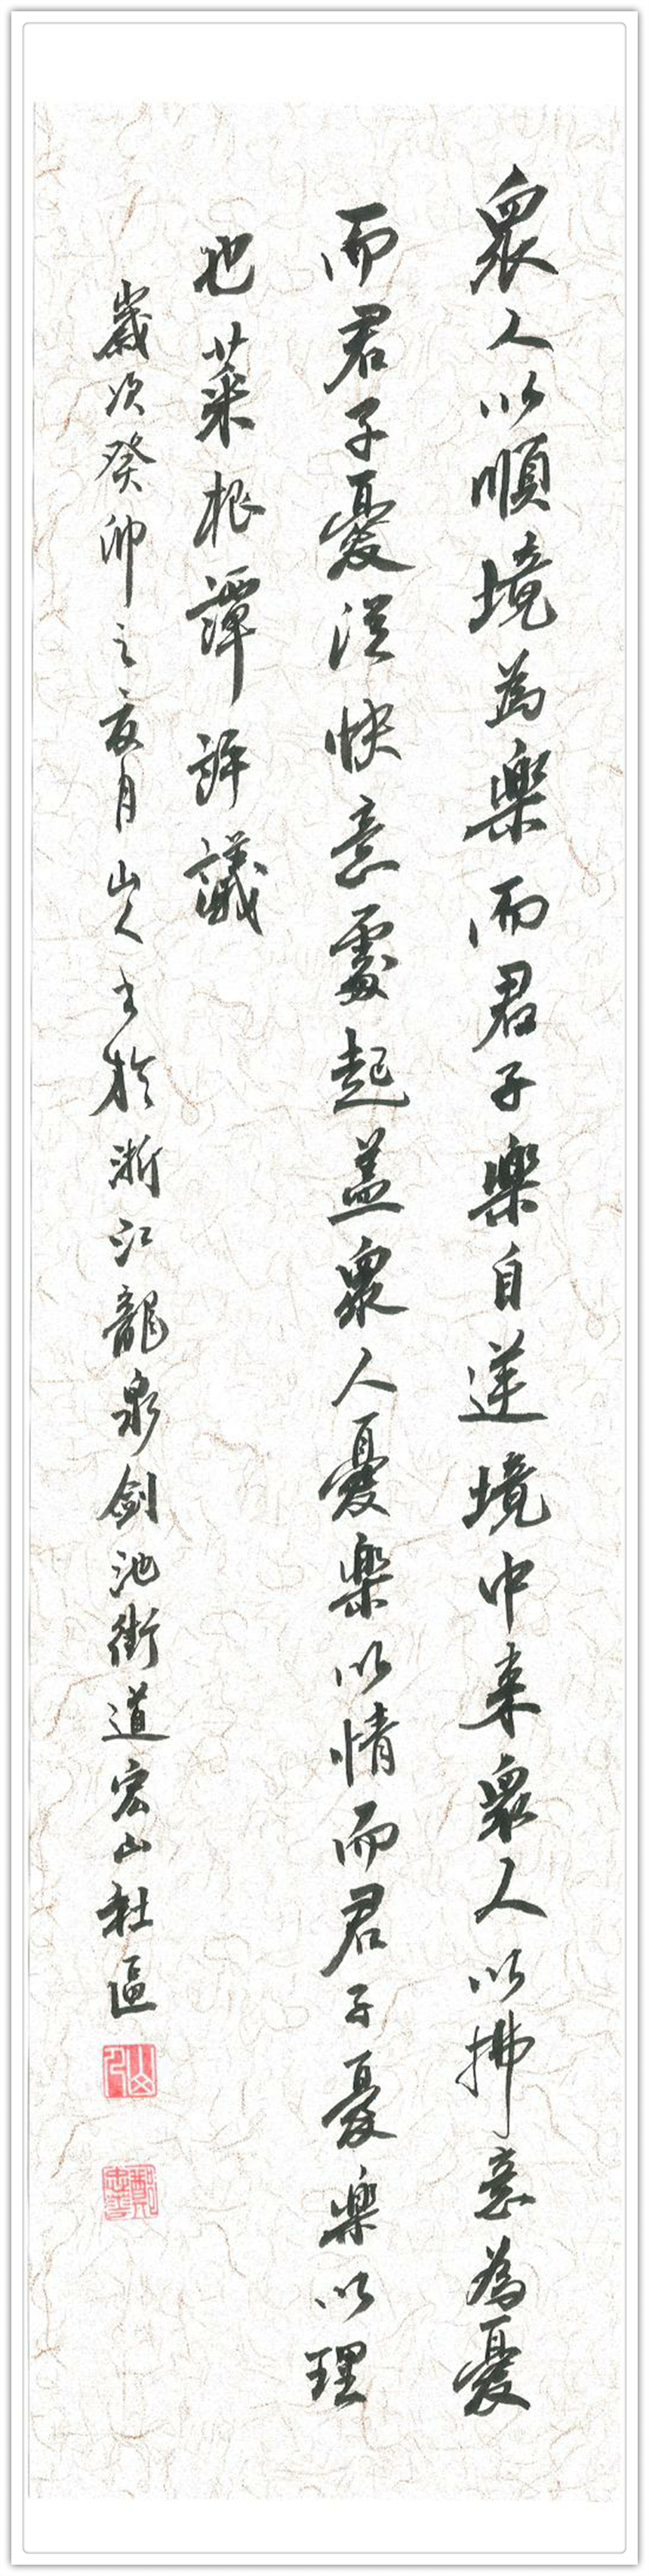 眾人以順境為樂而君子樂自逆境中来眾人以拂意為憂
而君子憂從快意處起盖眾人憂樂以情而君子憂樂以理
也菜根譚評議
歲次癸卯之亥月山人书於浙江龍泉劍池街道宏山社區
山人